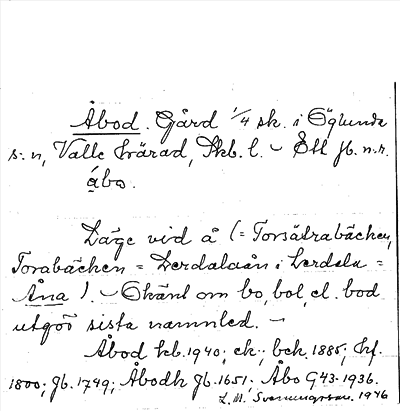 Åbod. Gård 1/4 sk. i Öglunda
s:n, Valle härad, Skb. l. - Ett jb. n:r.
åbo.
Läge vid å (= Torsätrabäcken,
Torabäcken = Lerdalaån i Lerdala =
Åna). - Okänt om bo, bol, el. bod
utgör sista namnled. -
Åbod kb. 1940; ek.; bek. 1885; hf.
1800; jb. 1749; Åbodh jb. 1651; Åbo G43. 1936.
L. M. Svenungsson. 1946